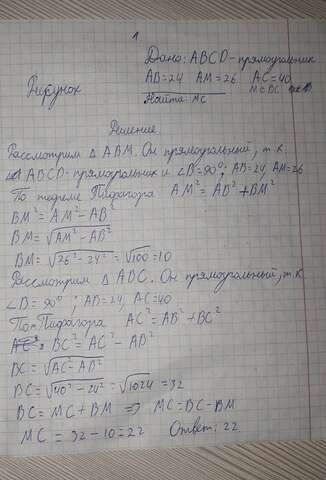 1
Дано: ABCD - прямоугольник
AB=24 AM=26 AC=40
M∈BC
Рисунок
Найти: MC
Решение
Рассмотрим △ ABM. Он прямоугольный, т.к.
ABCD - прямоугольник и ∠B=90°; AB=24, AM=26
По теореме Пифагора AM²=AB²+BM²
BM²=AM²-AB²
BM=√AM²-AB²
BM=√26²-24²=√100=10
Рассмотрим △ ABC. Он прямоугольный, т.к
∠B=90°; AB=24, AC=40
По Пифагора AC²=AB²+BC²
BC²=AC²-AB²
BC=√AC²-AB²
BC=√40²-24²=√1024=32
BC=MC+BM ⇒ MC=BC-BM
MC=32-10=22 Ответ: 22